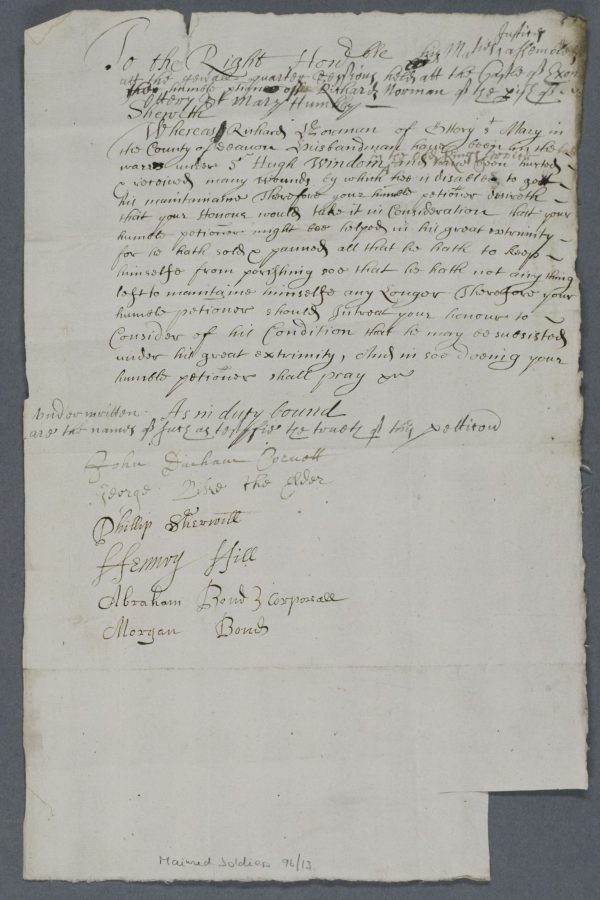 Justices
To the Right Honble his Maties assembled
att the genall quarter sessions held att the Castle of Exon
The humble peticon of Richard Norman of the pish of
Ottery St Mary Humbly
Sheweth
Whereas Richard Norman of Ottery St Mary in
the County of Deavon Husbandman have been in the
warrs under Sr Hugh Windom and have been hurted
& received many wounds by which hee is disabled to gett
his maintainance Therefore your humble petioner desireth
that your Honour would take it in Consideration that your
humble petioner might bee helped in his great extrimity
for he hath sold & panned all that he hath to keep
himselfe from perishing soe that he hath not any thing
left to maintaine himselfe any Longer Therefore your
humble petioner should Intreat your honour to
Consider of his Condition that he may be subsisted
under his great extrimity, And in soe doeing your
humble petioner shall pray &c
Underwritten As in duty bound
are the names of such as testifie the trueth of this petticon
John Durham Cornett
George the Elder
Phillip Sherwill
Henry Hill
Abraham Bond Corporall
Morgan Bond
Maimed Soldiers 96/13